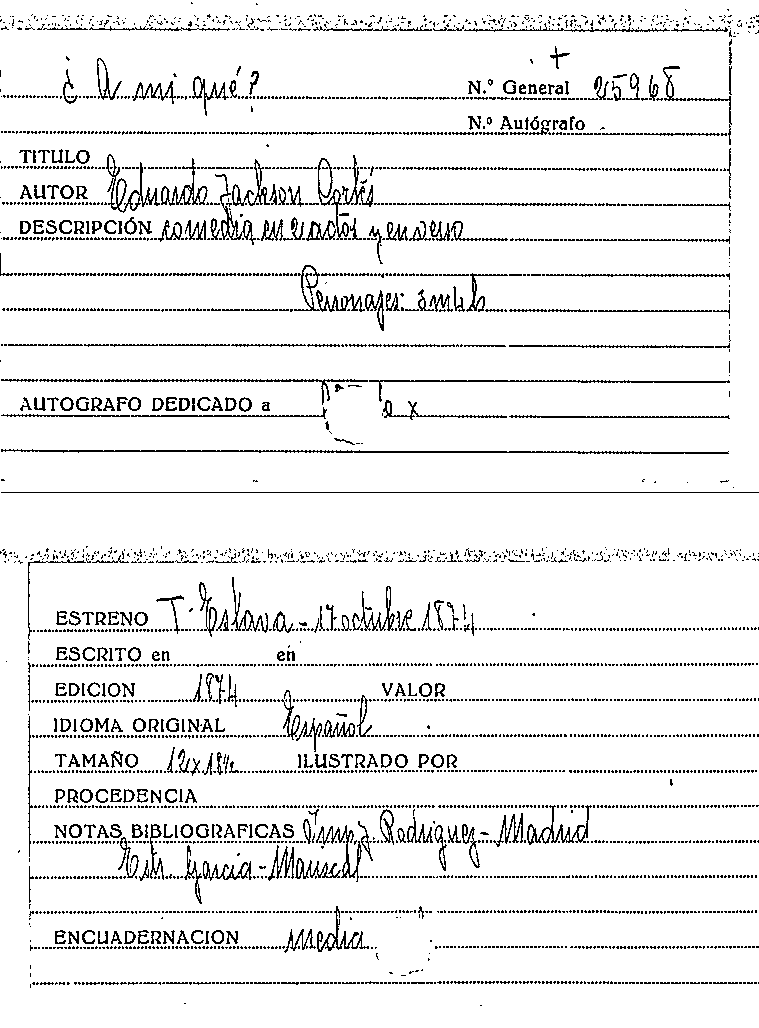 ¿A mi qué?
+
N.º General 25968
N.º Autógrafo
TITULO
AUTOR Eduardo Jackson Cortés
DESCRIPCIÓN comedia en 2 actos y en verso
Personajes: 3 m 4 h
AUTOGRAFO DEDICADO a
ESTRENO T. Eslava - 17 octubre 1874
ESCRITO en en
EDICION 1874 VALOR
IDIOMA ORIGINAL Español
TAMAÑO 12 x 18½ ILUSTRADO POR
PROCEDENCIA
NOTAS BIBLIOGRAFICAS Imp. J. Rodriguez - Madrid
Estr. García - Mariscal
ENCUADERNACION media